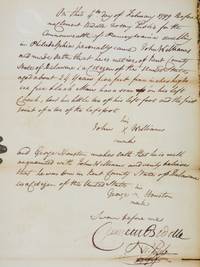 On this 4th Day of February 1799 Before
me Clement Biddle Notary Public for the
Commonwealth of Pennsylvania dwelling
in Philadelphia personally came John Williams
and made oath that he is native of Kent County
State of Delaware a Citizen of the United States
aged about 24 Years five feet
is a free black Man has a scar on his left
Cheek, has lost the toe of his left foot and the first
joint of a toe of the left foot
his
John X Williams
mark
and George Houston makes oath that he is well
acquainted with John Williams and verily believes
that he was born in Kent County State of Delaware
is a Citizen of the United States
his
George X Houston
mark
Sworn before me
Clement Biddle